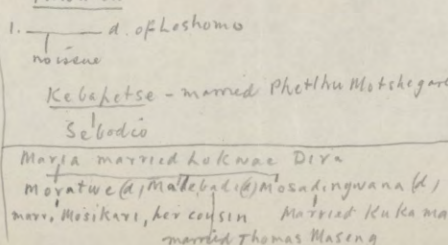 1. ——— d. of Leshomo
no issue
Kebapetse - married Phetlhu Motshegare
Sebodio
Maria married Lokwae Dira
Moratwe (d, Malebadi (d) Mosadingwana (d)
marr. Mosikari, her cousin Married Kuka
married Thomas Maseng